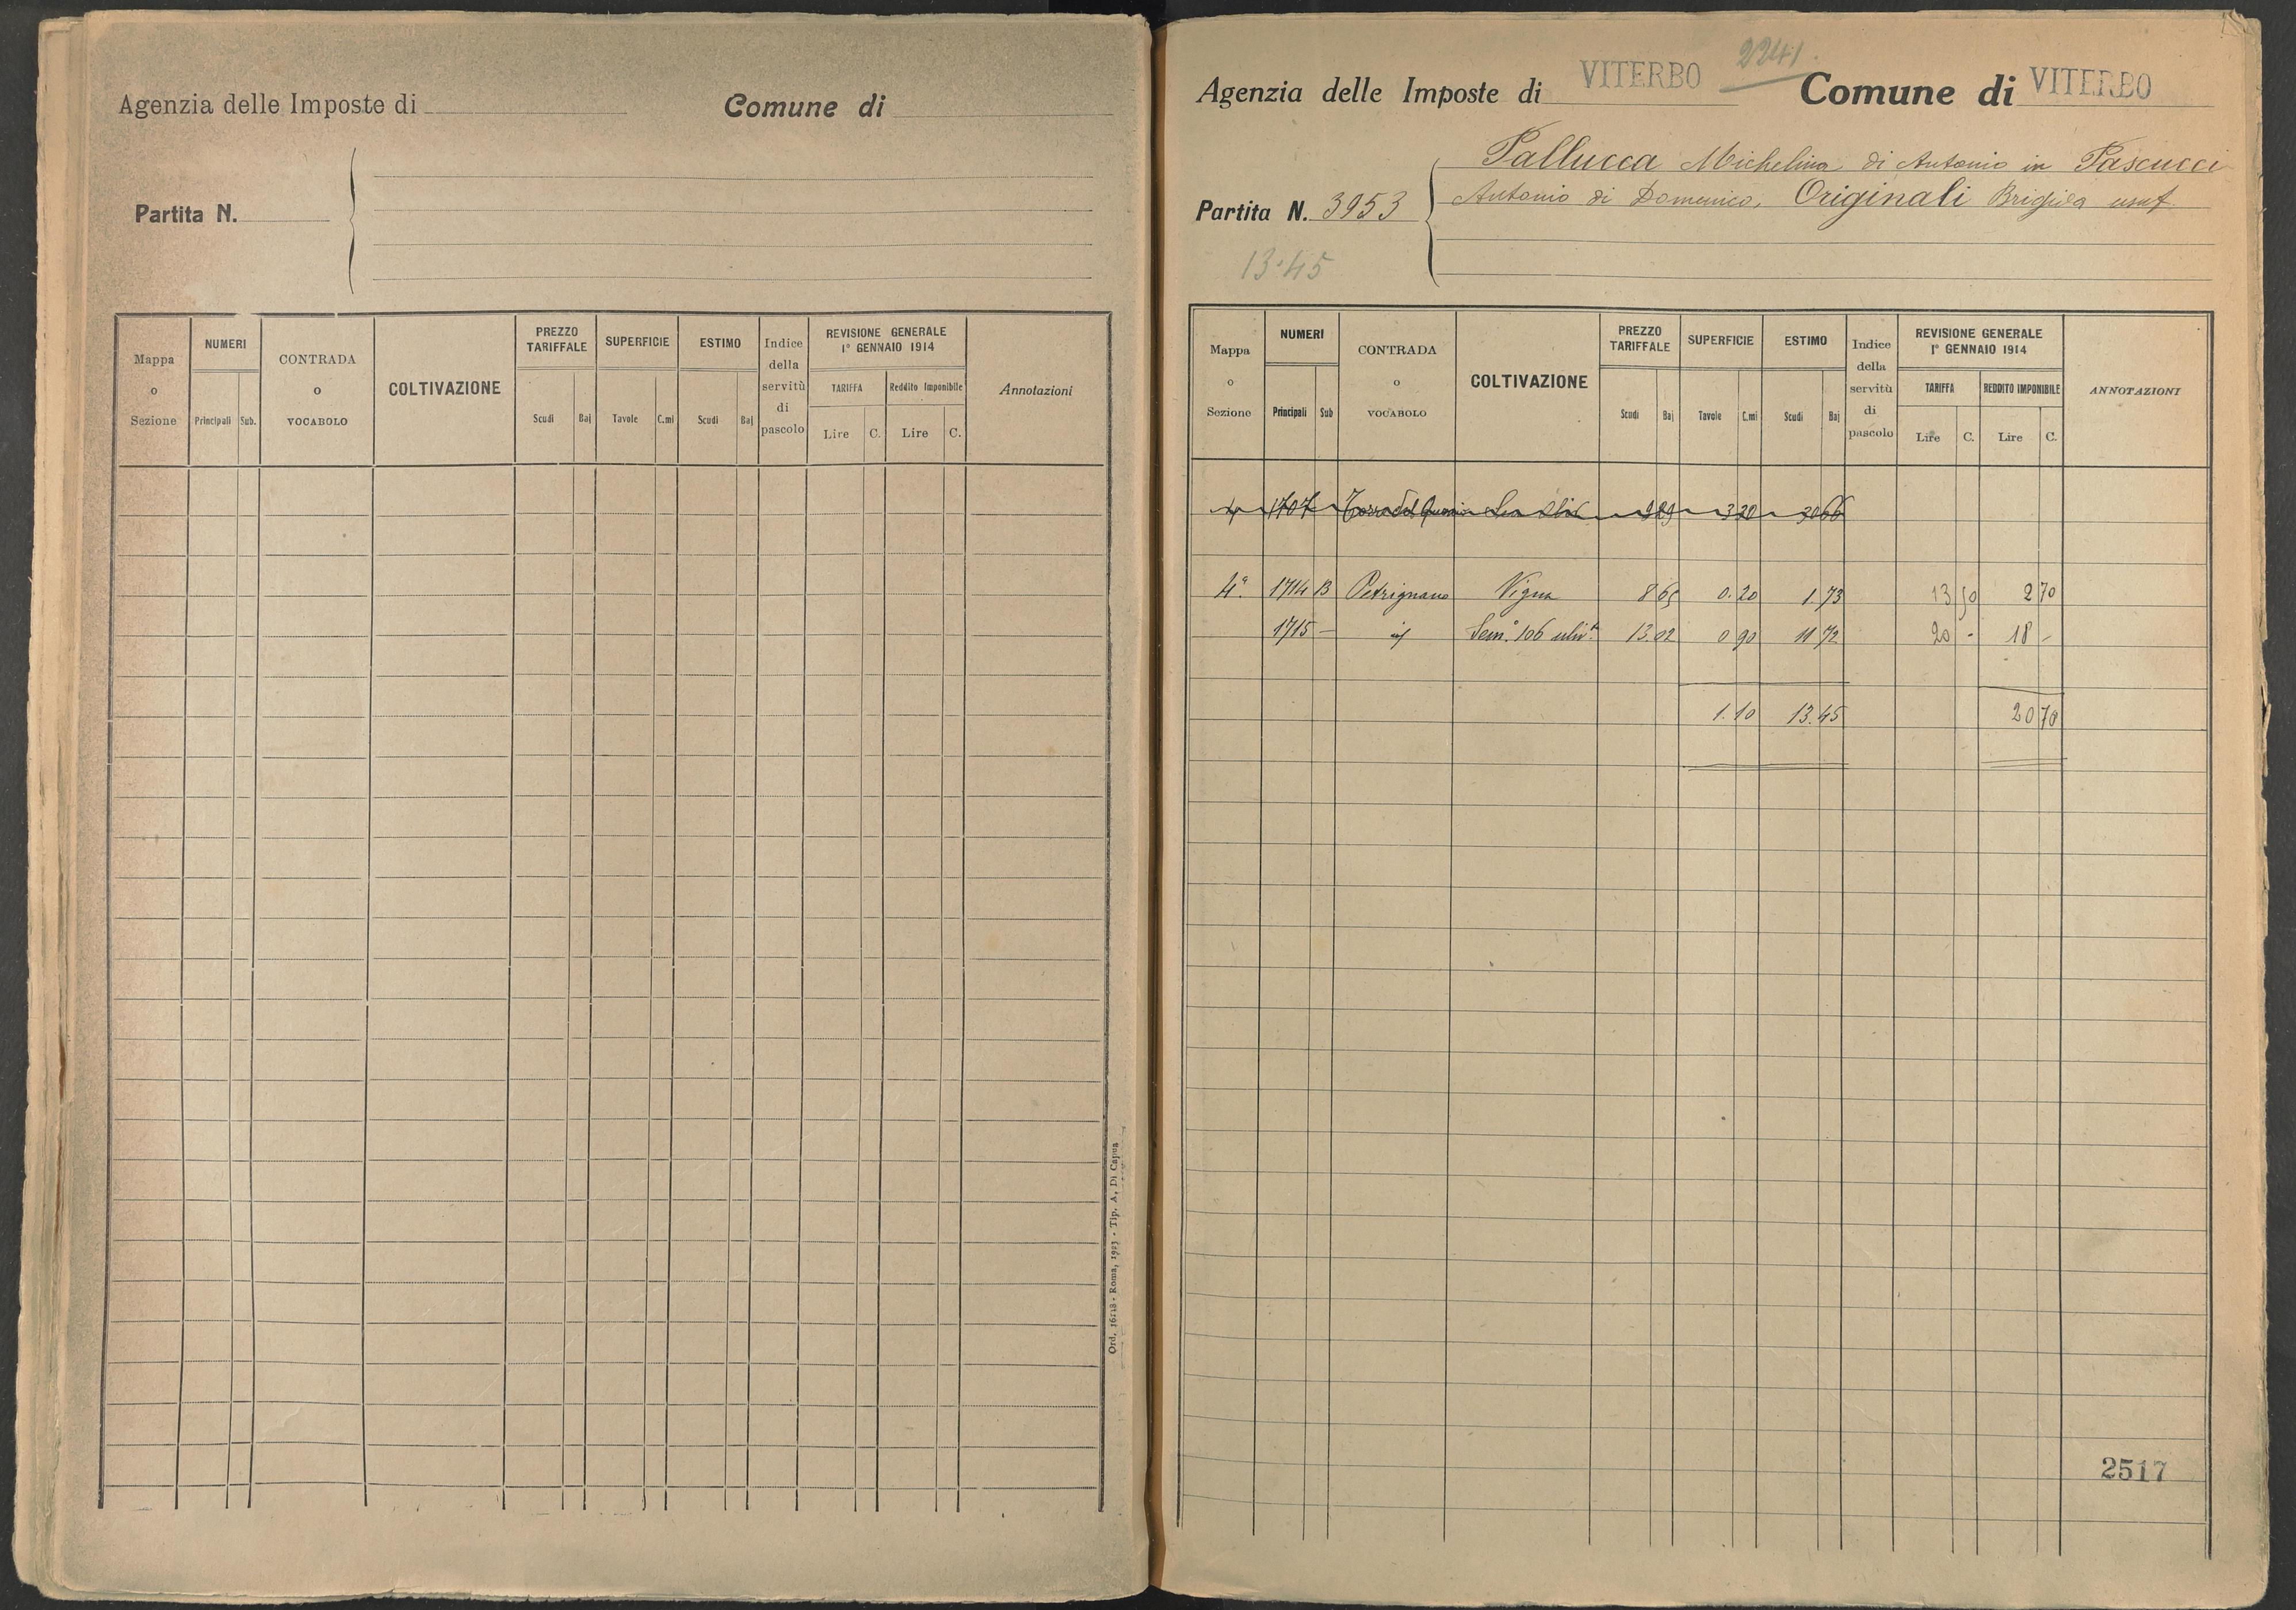 Agenzia delle Imposte di
Comune di
Partita N.
Mappa o Sezione
NUMERI
Principali
Sub.
CONTRADA o VOCABOLO
COLTIVAZIONE
PREZZO TARIFFALE
Scudi
Baj
SUPERFICIE
Tavole
C.mi
ESTIMO
Scudi
Baj
Indice della servitù di pascolo
REVISIONE GENERALE
1° GENNAIO 1914
TARIFFA
Reddito Imponibile
Lire C. Lire C.
Annotazioni
Ord. 16518 - Roma, 1923 - Tip. A. Di Capua
2241
Agenzia delle Imposte di VITERBO Comune di VITERBO
Pallucca Michelina di Antonio in Pascucci
Partita N. 3953
Antonio di Domenico, Originali Brigida usuf.
13.45
Mappa o Sezione
NUMERI
Principali
Sub
CONTRADA o VOCABOLO
COLTIVAZIONE
PREZZO TARIFFALE
Scudi
Baj
SUPERFICIE
Tavole
C.mi
ESTIMO
Scudi
Baj
Indice della servitù di pascolo
REVISIONE GENERALE
1° GENNAIO 1914
TARIFFA
REDDITO IMPONIBILE
Lire C. Lire C.
ANNOTAZIONI
4 1707 3 20 30 66
4ª 1714 B Petrignano Vigna 8 65 0.20 1.73 13 50 2 70
1715 - id Sem.° 106 uliv.i 13.02 0 90 11 72 20 - 18 -
1.10 13.45 20 70
2517